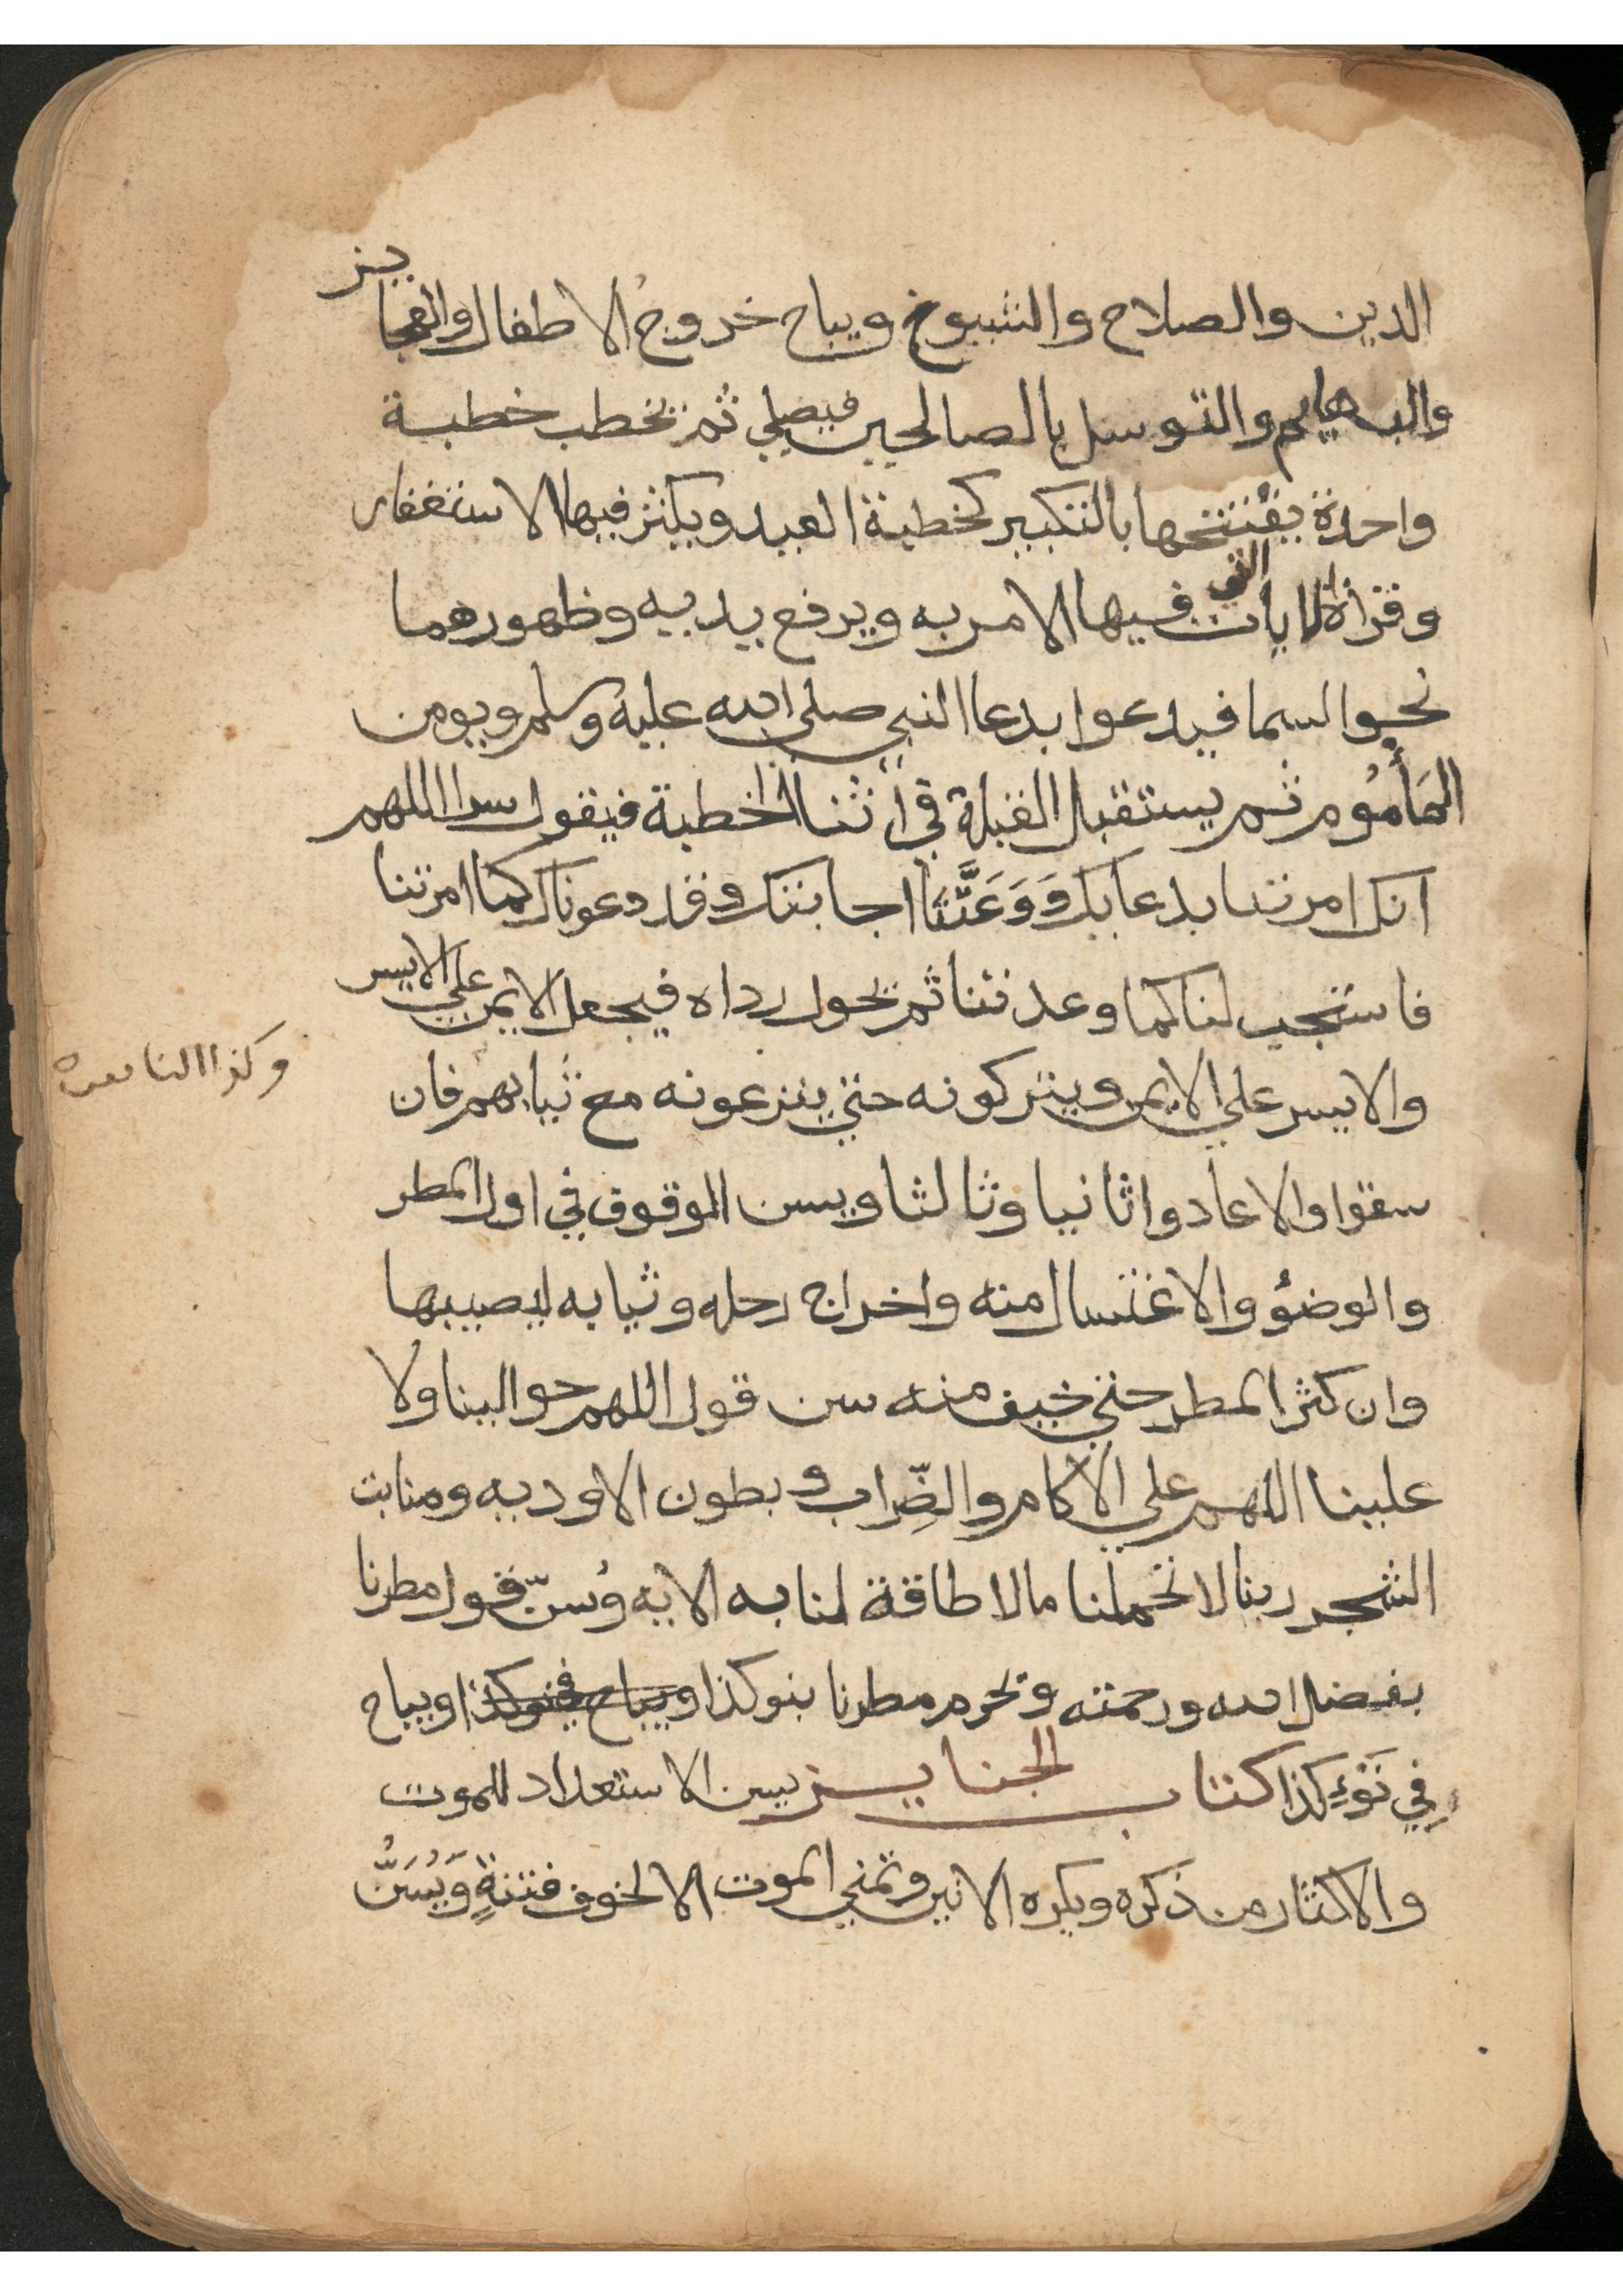 الدين والصلاح والشيوخ ويباح خروج الاطفال والعجايز
والبهايم والتوسل بالصالحين فيصلي ثم يخطب خطبة
واحدة يفتتحها بالتكبير كخطبة العيد ويكثر فيها الاستغفار
وقراة الايات التي فيها الامر به ويرفع يديه وظهورهما
نحو السما فيدعوا بدعا النبي صلى الله عليه وسلم ويومن
المَأمُوم ثم يستقبل القبلة في اثنا الخطبة فيقول سرا اللهم
انك امرتنا بدعايك وَوَعَدَّتَنَا اجابتك وقد دعوناك كما امرتنا
فاستجب لنا كما وعدتنا ثم يحول رداه فيجعل الايمن علي الايسر
والايسر علي الايمن ويتركونه حتي ينزعونه مع ثيابهم فان
وكذا الناس
سقوا والا عادوا ثانيا وثالثا ويسن الوقوف في اول المطر
والوضؤ والاغتسال منه واخراج رحله وثيابه ليصيبها
وان كثر المطر حتي خيف منه سن قول اللهم حوالينا ولا
علينا اللهم علي الآكام والضِّراب وبطون الاوديه ومنابت
الشجر ربنا لا تحملنا مالا طاقة لنا به الايه وسُنّ قول مطرنا
بفضل الله ورحمته وتحرم مطرنا بنو كذا ويباح في نو كذا ويباح
فِي نَوْءِ كذا كتاب الجنايز يسن الاستعداد للموت
والاكثار من ذكره ويكره الانين وتمني الموت الا لخوف فتنةٍ وَيُسَنُّ